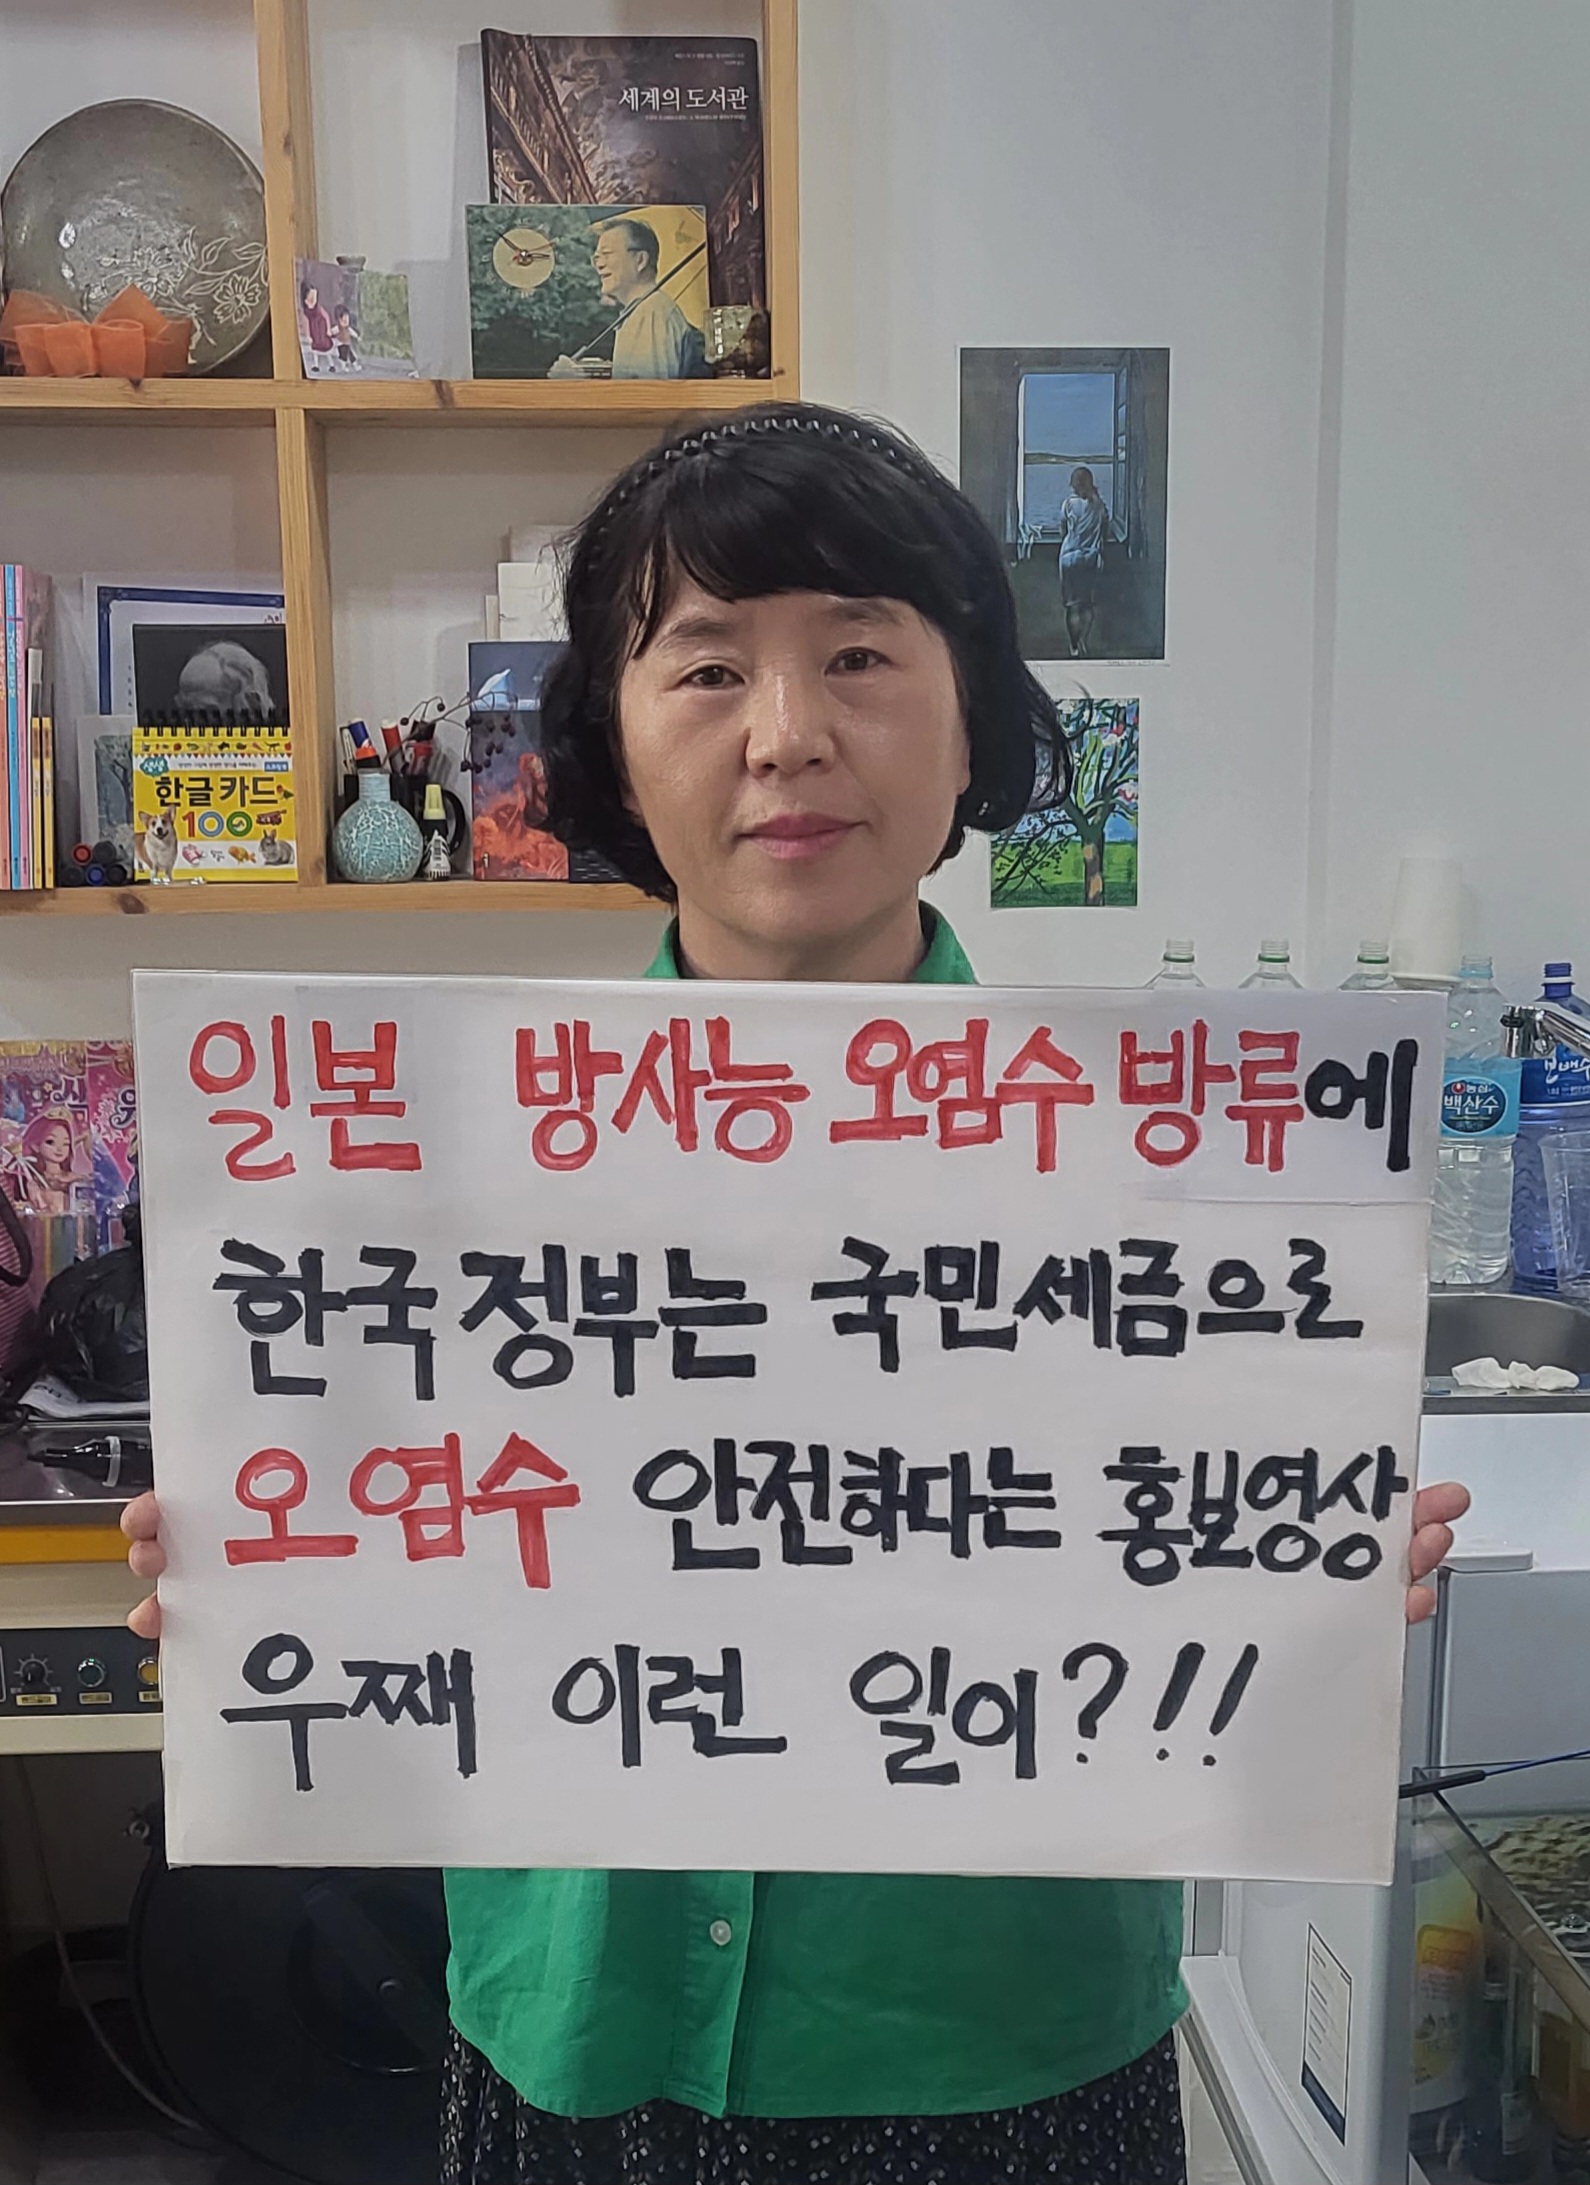 세계의 도서관
한글 카드
100
일본 방사능 오염수 방류에
한국 정부는 국민세금으로
오염수 안전하다는 홍보영상
우째 이런 일이?!!
농심
백산수